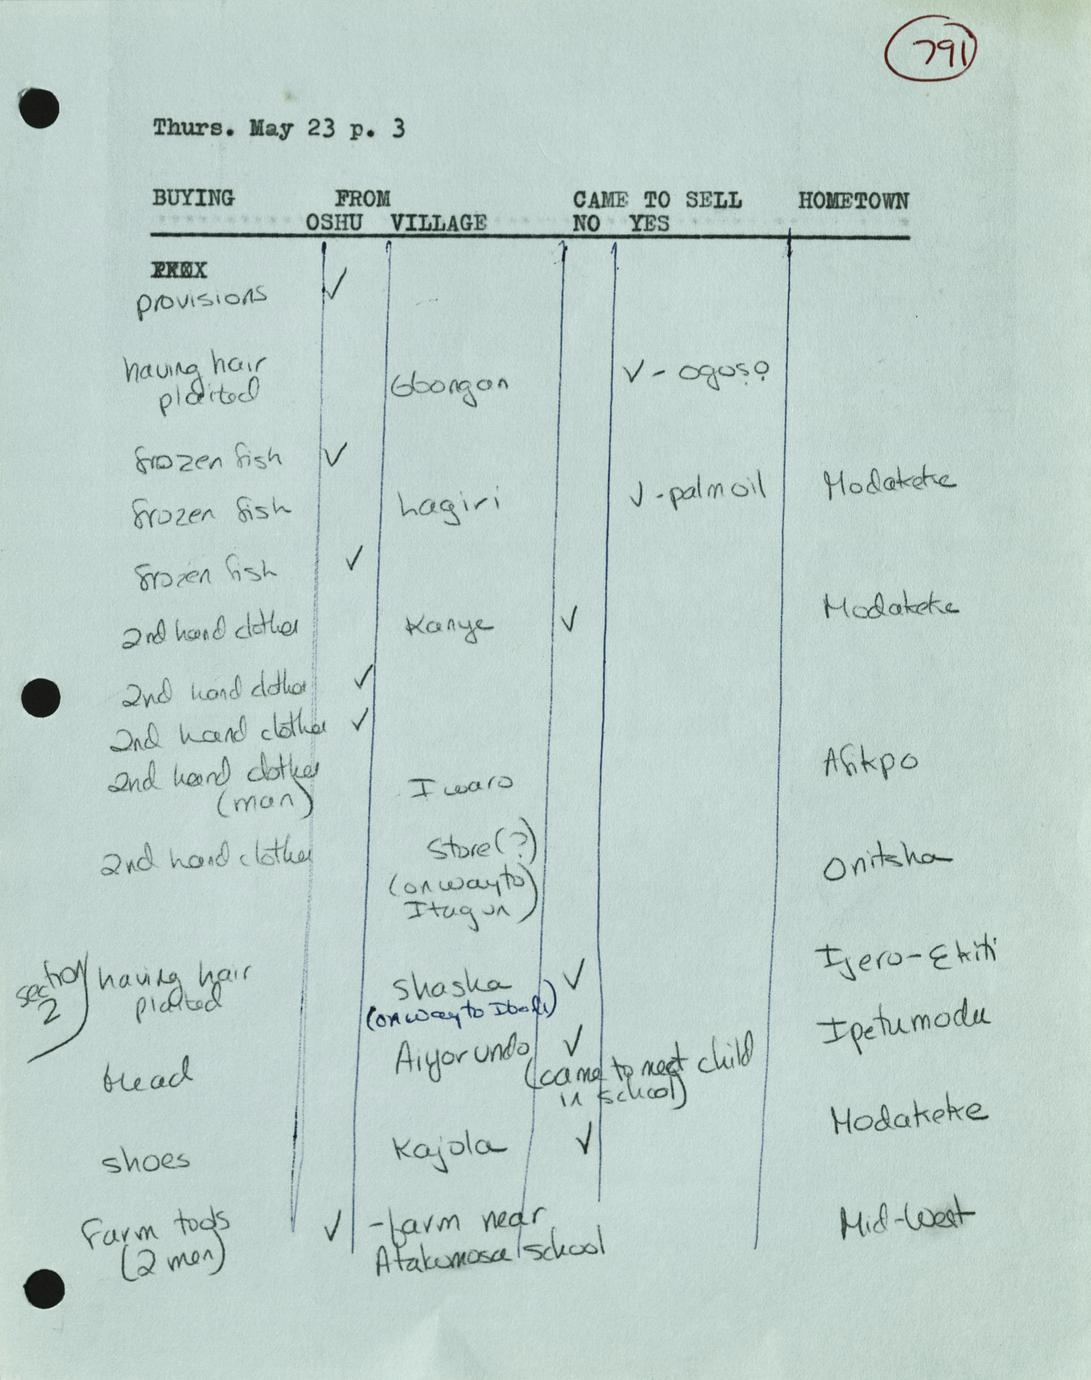 791
Thurs. May 23 p. 3
BUYING FROM CAME TO SELL HOMETOWN
OSHU VILLAGE NO YES
provisions ✓
having hair plaited Gbongan ✓ - ogoṣọ
frozen fish ✓
frozen fish Lagiri ✓ - palm oil Modakeke
frozen fish ✓
2nd hand clothes Kanye ✓ Modakeke
2nd hand clothes ✓
2nd hand clothes ✓
2nd hand clothes Iwaro Afikpo
(man)
2nd hand clothes Store (?) Onitsha
(on way to
Itagun)
section 2
having hair Shasha ✓ Ijero-Ekiti
plaited (on way to
Aiyorundo ✓ Ipetumodu
bread (came to meet child
in school)
shoes Kajola ✓ Modakeke
Farm tools ✓ - farm near Mid-West
(2 men) Atakumosa school